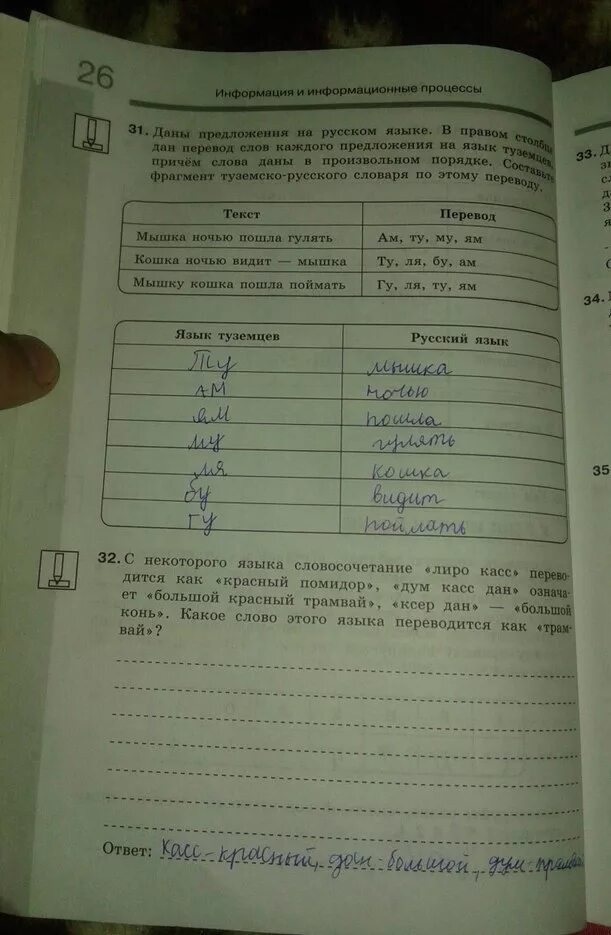 26
Информация и информационные процессы
31. Даны предложения на русском языке. В правом столбце
дан перевод слов каждого предложения на язык туземцев,
причём слова даны в произвольном порядке. Составьте
фрагмент туземско-русского словаря по этому переводу.
Текст Перевод
Мышка ночью пошла гулять Ам, ту, му, ям
Кошка ночью видит — мышка Ту, ля, бу, ам
Мышку кошка пошла поймать Гу, ля, ту, ям
Язык туземцев Русский язык
Ту мышка
ам ночью
ям пошла
му гулять
ля кошка
бу видит
гу поймать
32. С некоторого языка словосочетание «лиро касс» перево-
дится как «красный помидор», «дум касс дан» означа-
ет «большой красный трамвай», «ксер дан» — «большой
конь». Какое слово этого языка переводится как «трам-
вай»?
Ответ: Касс-красный, дан-большой, дум-трамвай
33. Д
34.
35